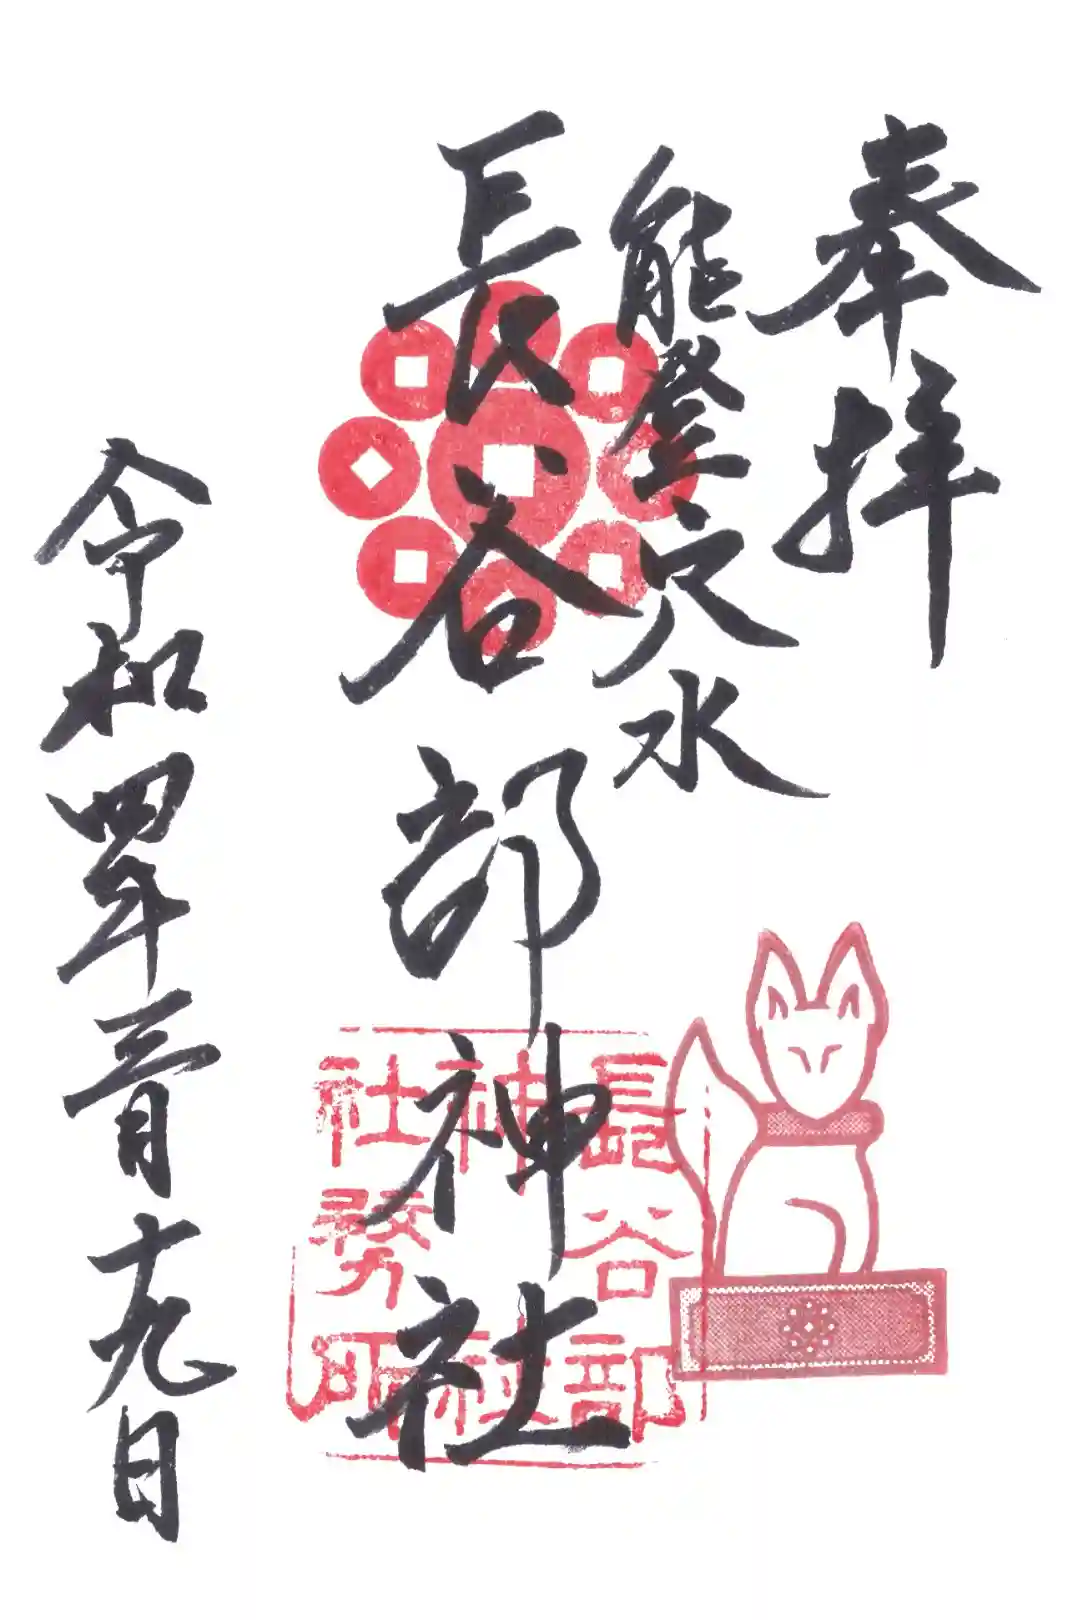 奉拝
能登穴水
長谷部神社
令和四年三月十九日
長谷部
神社
社務所